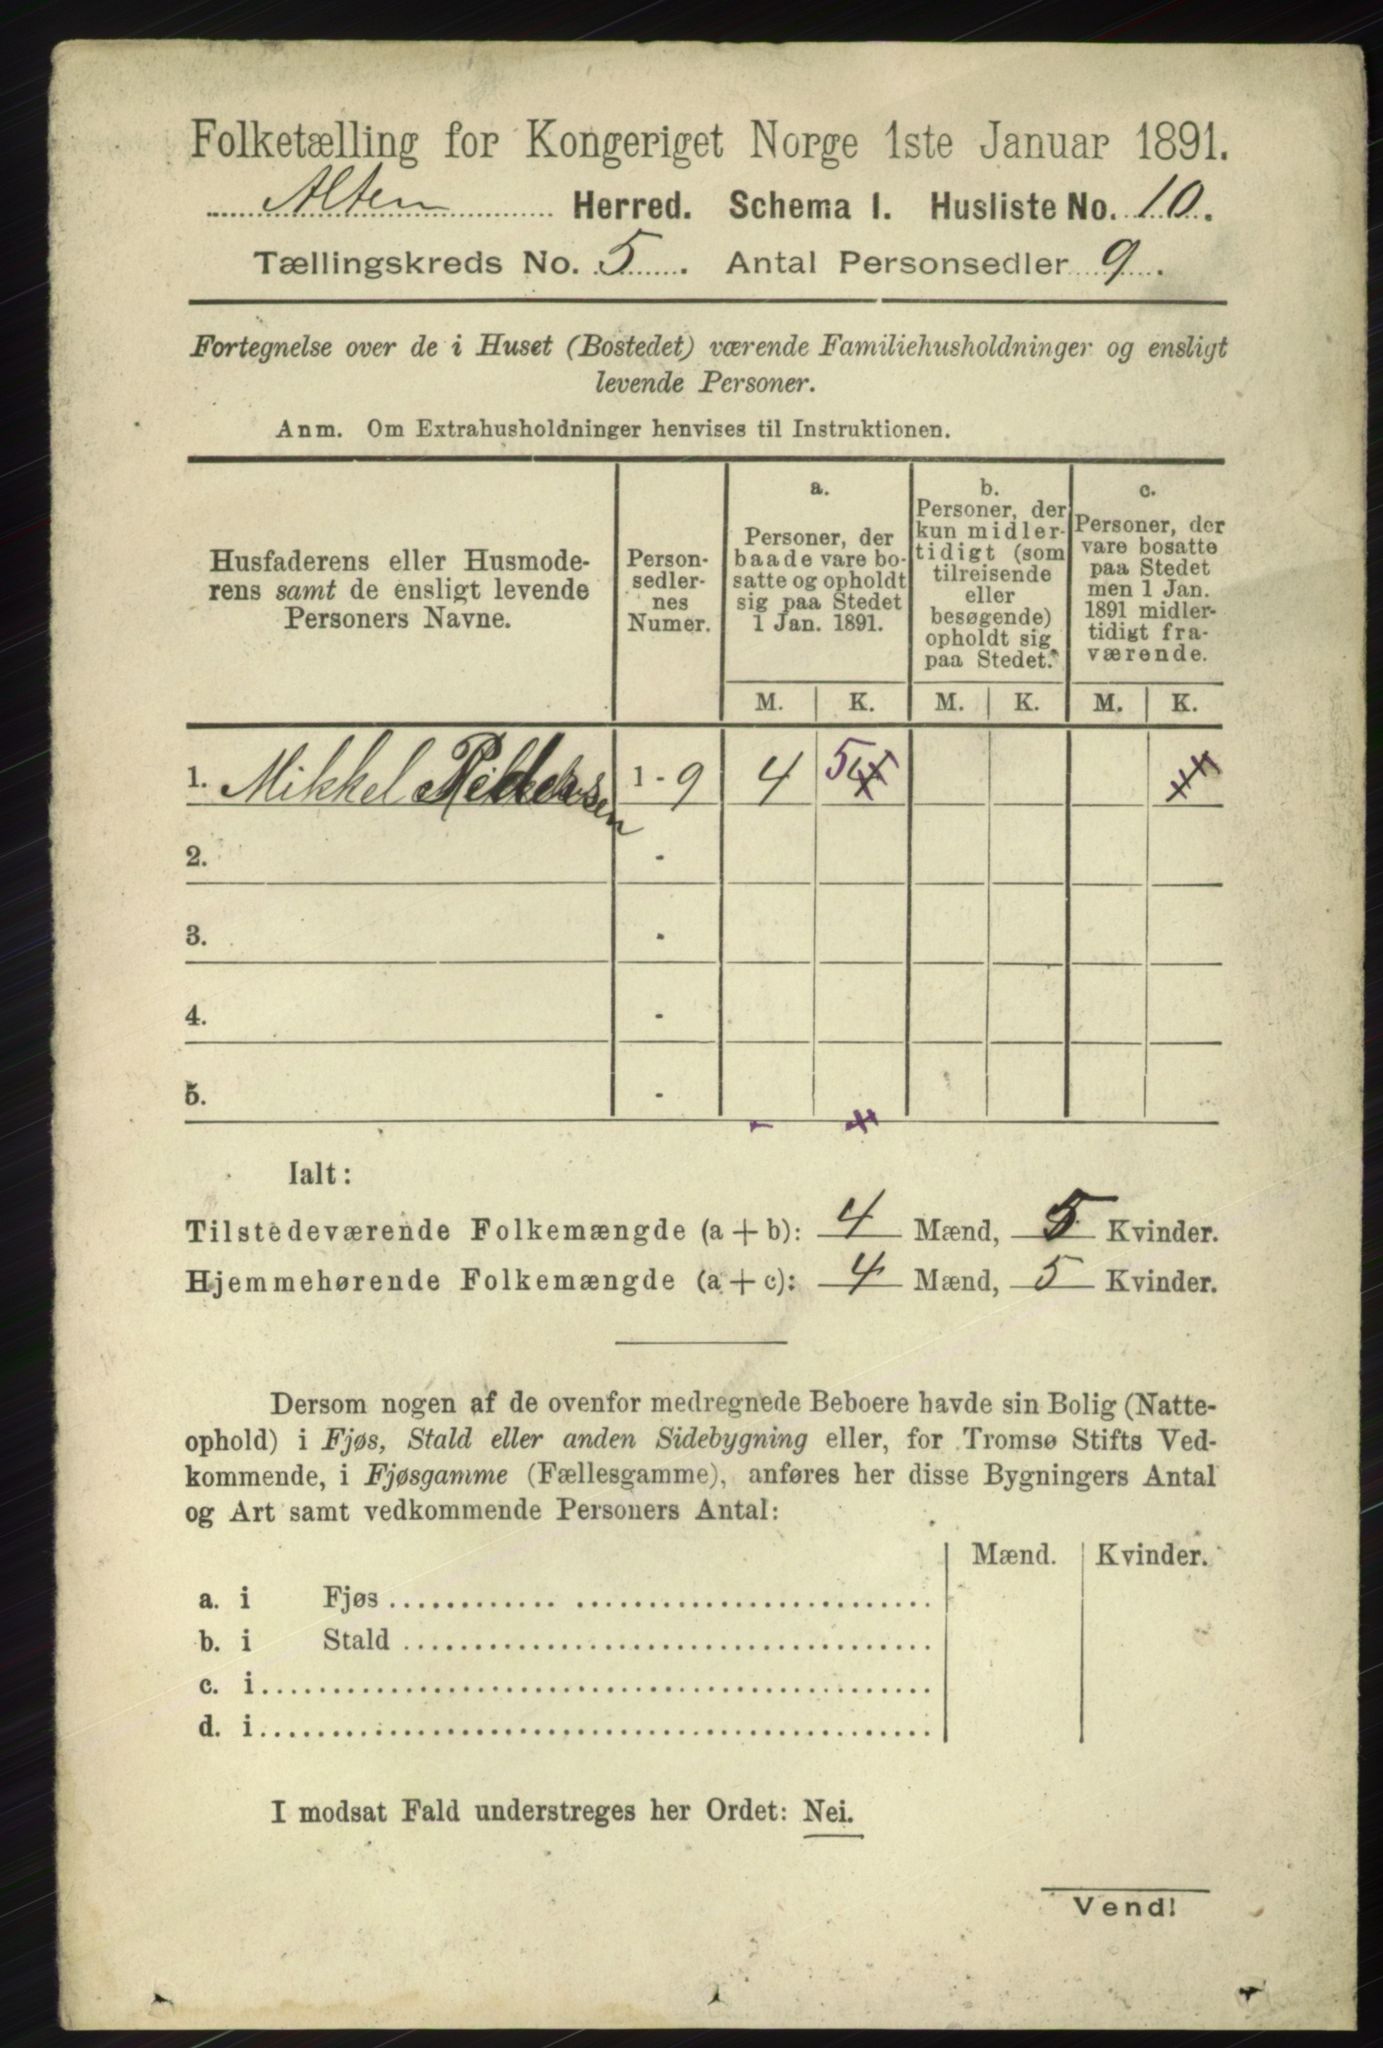 Folketælling for Kongeriget Norge 1ste Januar 1891.
Alten Herred. Schema I. Husliste No. 10.
Tællingskreds No. 5. Antal Personsedler 9.
Fortegnelse over de i Huset (Bostedet) værende Familiehusholdninger og ensligt
levende Personer.
Anm. Om Extrahusholdninger henvises til Instruktionen.
Husfaderens eller Husmode-
rens samt de ensligt levende
Personers Navne.
Person-
sedler-
nes
Numer.
a.
Personer, der
baade vare bo-
satte og opholdt
sig paa Stedet
1 Jan. 1891.
b.
Personer, der
kun midler-
tidigt (som
tilreisende
eller
besøgende)
opholdt sig
paa Stedet.
c.
Personer, der
vare bosatte
paa Stedet
men 1 Jan.
1891 midler-
tidigt fra-
værende.
M. K. M. K. M. K.
1. Mikkel 1 - 9 4 5
2. -
3. -
4. -
5. -
Ialt:
Tilstedeværende Folkemængde (a + b): 4 Mænd, 5 Kvinder.
Hjemmehørende Folkemængde (a + c): 4 Mænd, 5 Kvinder.
Dersom nogen af de ovenfor medregnede Beboere havde sin Bolig (Natte-
ophold) i Fjøs, Stald eller anden Sidebygning eller, for Tromsø Stifts Ved-
kommende, i Fjøsgamme (Fællesgamme), anføres her disse Bygningers Antal
og Art samt vedkommende Personers Antal:
Mænd. Kvinder.
a. i Fjøs
b. i Stald
c. i
d. i
I modsat Fald understreges her Ordet: Nei.
Vend!